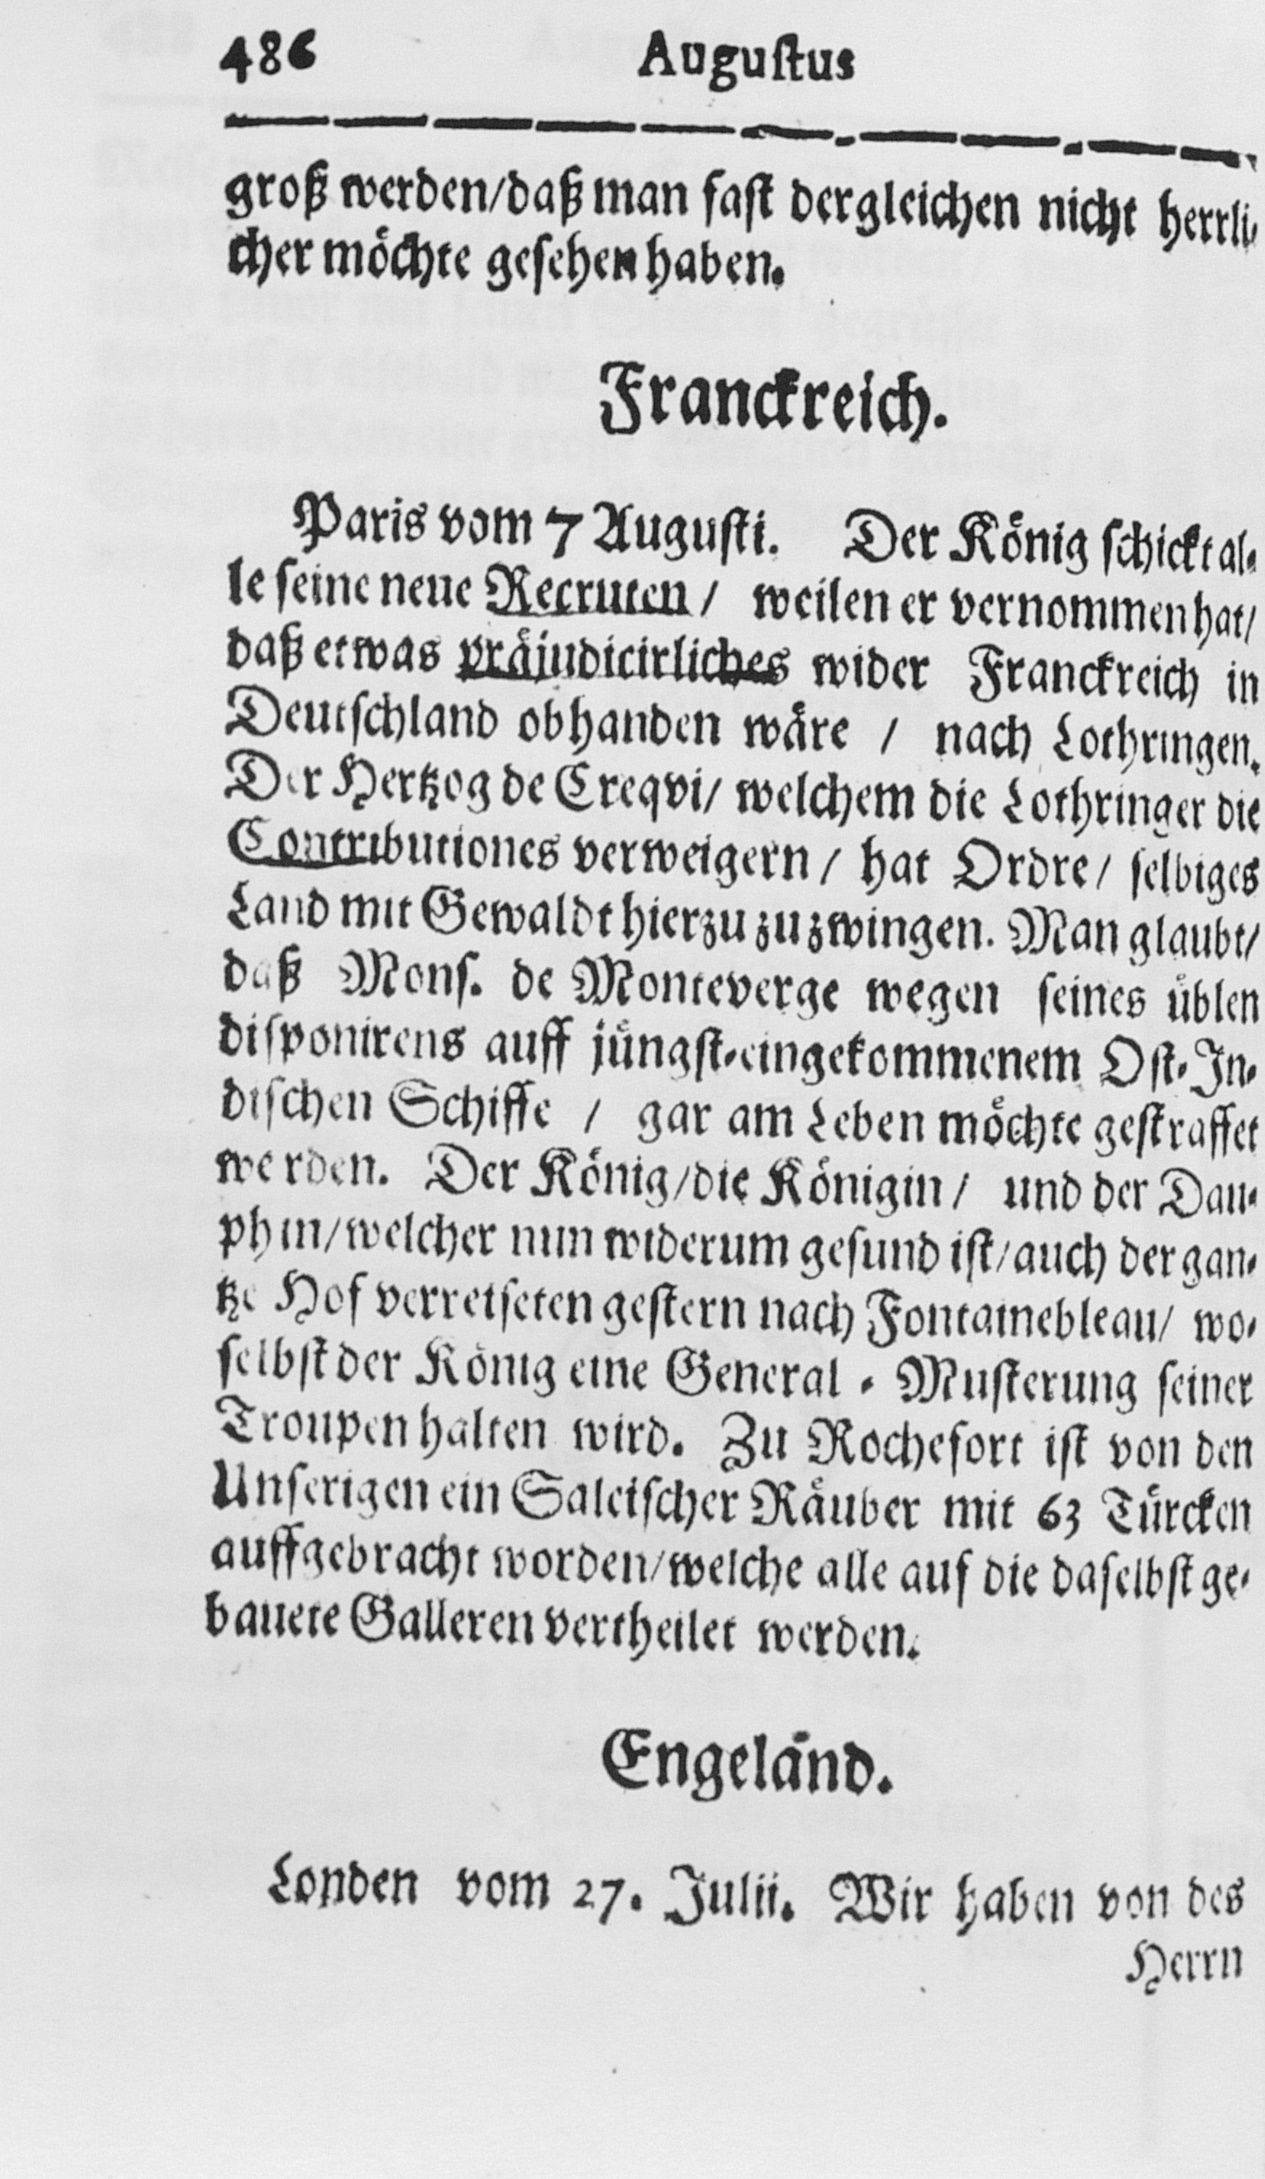 486 Augustus
groß werden/daß man fast dergleichen nicht herrli-
cher möchte gesehen haben.
Franckreich.
Paris vom 7 Augusti. Der König schickt al-
le seine neue Recruten / weilen er vernommen hat/
daß etwas präjudicirliches wider Franckreich in
Deutschland obhanden wäre / nach Lothringen.
Der Hertzog de Creqvi/ welchem die Lothringer die
Contributiones verweigern / hat Ordre / selbiges
Land mit Gewaldt hierzu zu zwingen. Man glaubt/
daß Mons. de Monteverge wegen seines üblen
disponirens auff jüngst-eingekommenem Ost-In-
dischen Schiffe / gar am Leben möchte gestraffet
werden. Der König/die Königin / und der Dau-
phin/welcher nun widerum gesund ist/auch der gan-
tze Hof verreiseten gestern nach Fontainebleau/ wo-
selbst der König eine General - Musterung seiner
Troupen halten wird. Zu Rochefort ist von den
Unserigen ein Saleischer Räuber mit 63 Türcken
auffgebracht worden/welche alle auf die daselbst ge-
bauete Galleren vertheilet werden.
Engeländ.
Londen vom 27. Julii. Wir haben von des
Herrn